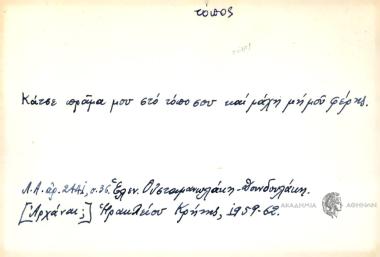 τόπος
Κάτσε πρᾶμα μου στό τόπο σου καί μάχη μή μοῦ φέρης.
Λ.Α. ἀρ. 2441, σ. 36, Ἑλεν. Οὐσταμανωλάκη-Πονδουλάκη.
[Ἀρχάναι;] Ἡρακλείου Κρήτης, 1959-62.
ΑΚΑΔΗΜΙΑ ΑΘΗΝΩΝ